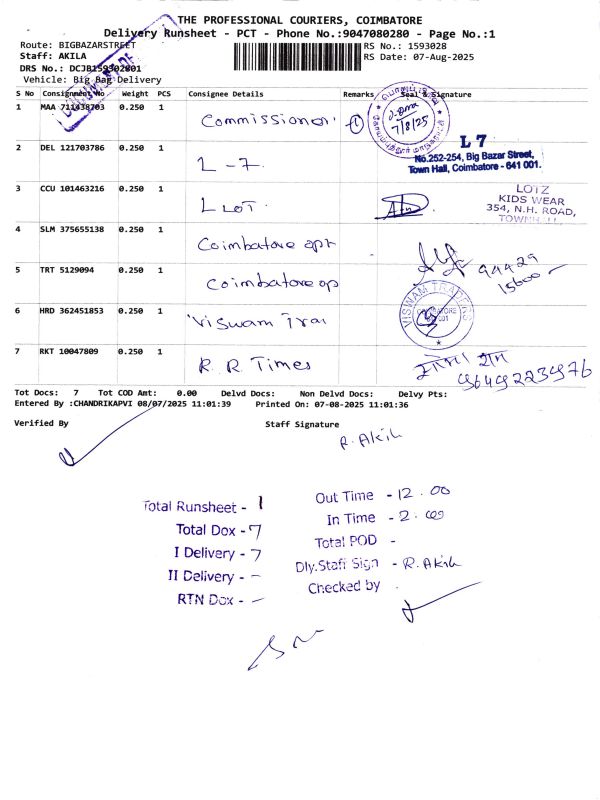 THE PROFESSIONAL COURIERS, COIMBATORE
Delivery Runsheet - PCT - Phone No.:9047080280 - Page No.:1
Route: BIGBAZARSTREET
RS No.: 1593028
Staff: AKILA
RS Date: 07-Aug-2025
DRS No.: DCJB159302801
Vehicle: Big Bag Delivery
S No Consignment No Weight PCS Consignee Details Remarks Seal & Signature
1 MAA 711438703 0.250 1 Commissioner
7/8/25
2 DEL 121703786 0.250 1 L-7
L 7
No.252-254, Big Bazar Street,
Town Hall, Coimbatore - 641 001.
3 CCU 101463216 0.250 1 L LOT
LOTZ
KIDS WEAR
354, N.H. ROAD,
TOWNHALL
4 SLM 375655138 0.250 1 Coimbatore opt
94429
15600
5 TRT 5129094 0.250 1 Coimbatore op
6 HRD 362451853 0.250 1 Viswam Trai
VISWAM TRADERS
7 RKT 10047809 0.250 1 R. R. Times
Tot Docs: 7 Tot COD Amt: 0.00 Delvd Docs: Non Delvd Docs: Delvy Pts:
Entered By :CHANDRIKAPVI 08/07/2025 11:01:39 Printed On: 07-08-2025 11:01:36
Verified By Staff Signature
R. Akila
Total Runsheet - 1
Total Dox - 7
I Delivery - 7
II Delivery - -
RTN Dox - -
Out Time - 12.00
In Time - 2.00
Total POD -
Dly.Staff Sign - R. Akila
Checked by